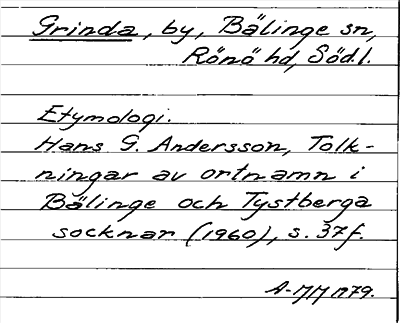 Grinda, by, Bälinge sn,
Rönö hd, Södl.
Etymologi.
Hans G. Andersson, Tolk-
ningar av ortnamn i
Bälinge och Tystberga
socknar (1960), s. 37f.
1979.